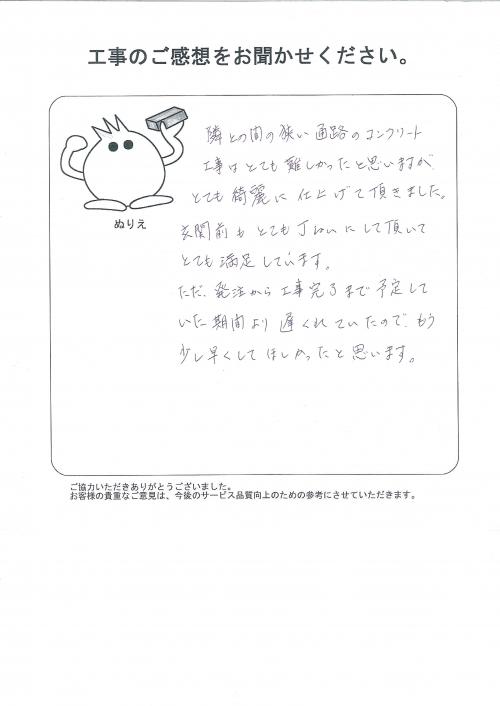 工事のご感想をお聞かせください。
隣との間の狭い通路のコンクリート
工事はとても難しかったと思いますが
とても綺麗に仕上げて頂きました。
ぬりえ
玄関前もとても丁ねいにして頂いて
とても満足しています。
ただ、発注から工事完了まで予定して
いた期間より遅くれていたので、もう
少し早くしてほしかったと思います。
ご協力いただきありがとうございました。
お客様の貴重なご意見は、今後のサービス品質向上のための参考にさせていただきます。